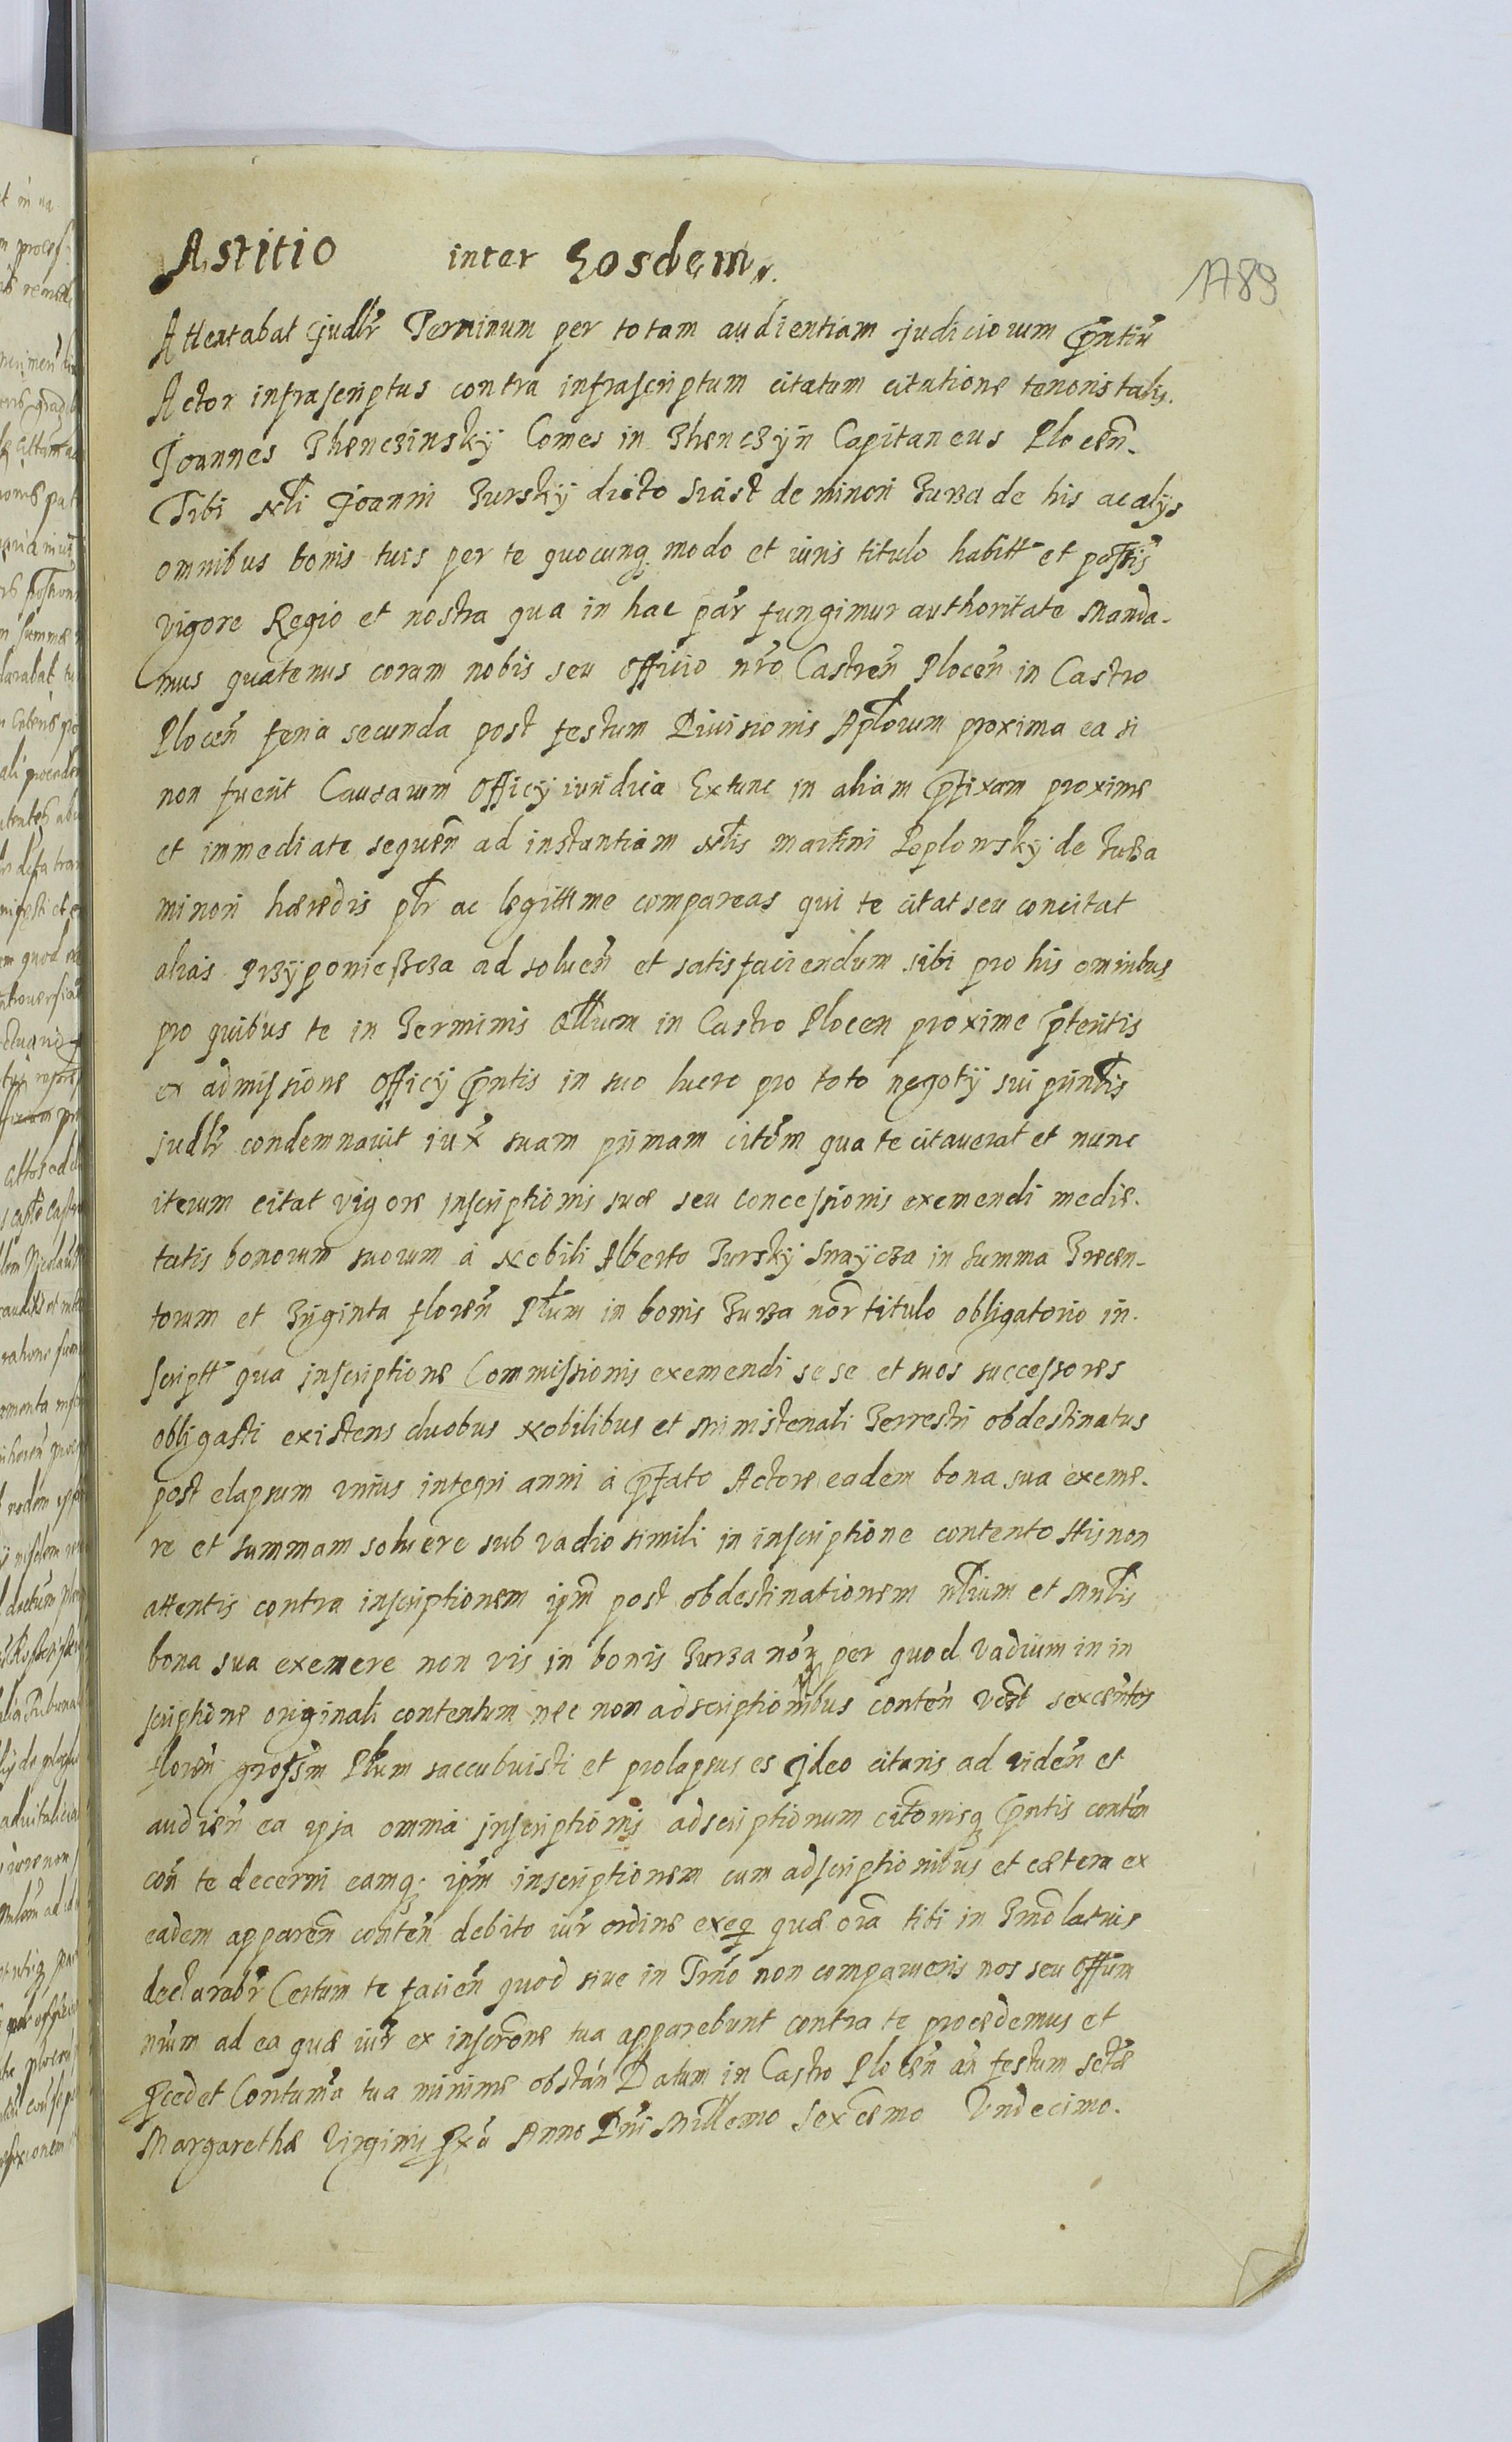 Astitio inter Eosdem.
1789
Attentabat judlr Terminum per totam audientiam judiciorum pntiu
Actor infrascriptus contra infrascriptum citatum citatione tenoris talis.
Joannes Thenczinsky Comes in Thenczyn Capitaneus Plocen.
Tibi Nli Joanni Turskÿ dicto Siast de minori Turza de his ac alÿs
omnibus bonis tuis per te quocunq modo et iuris titulo habitt et possis
vigore Regio et nostra qua in hac par fungimur authoritate Manda-
mus quatenus coram nobis seu officio nro Castren Plocen in Castro
Plocen feria secunda post festum Divisionis Aplorum proxima ea si
non fuerit Causarum Officÿ iuridica Extunc in aliam pfixam proxime
et immediate sequen ad instantiam Nlis Martini Leplowskÿ de Turza
minori hæredis plr ac legittime compareas qui te citat seu concitat
alias Przÿponiesscza ad soluen et satisfaciendum sibi pro his omnibus
pro quibus te in Terminis qllum in Castro Plocen proxime pteritis
ex admissione Officÿ pntis in suo lucro pro toto negotÿ sui puntis
judlr condemnavit iux suam pimam citom qua te citaverat et nunc
iterum citat vigore inscriptionis suæ seu concessionis exemendi medie-
tatis bonorum suorum à Nobili Alberto Turskÿ Snaÿcza in summa Trecen-
torum et Triginta floren Plum in bonis Turza nor titulo obligatorio in-
scriptt qua inscriptione Commissionis exemendi se se et suos successores
obligasti existens duobus Nobilibus et Ministeriali Terrestri obdestinatus
post elapsum unius integri anni à pfato Actore eadem bona sua exeme-
re et summam soluere sub vadio simili in inscriptione contento Hisnon
attentis contra inscriptionem ipm post obdestinationem nlium et Mnlis
bona sua exemere non vis in bonis Turza nor per quod Vadium in in
scriptione originali contentum nec non adscriptionibus conten vdet sexcentos
floren grossm Plum succubuisti et prolapsus es Jdeo citaris ad viden et
audien ea ipsa omnia inscriptionis adscriptionum citonisq pntis conten
con te decerni eamq ipm inscriptionem cum adscriptionibus et cætera ex
eadem apparen conten debito iur ordine exeq quæ ora tibi in Trno latius
declarabr Certum te facien quod sive in Trno non comparueris nos seu Offum
nrum ad ea quæ iur ex inscrone tua apparebunt contra te procedemus et
pcedet Contuma tua minime obstan Datum in Castro Plocen an festum sctæ
Margarethæ Virginis pxa Anno Dni Millemo Sexcemo Undecimo.